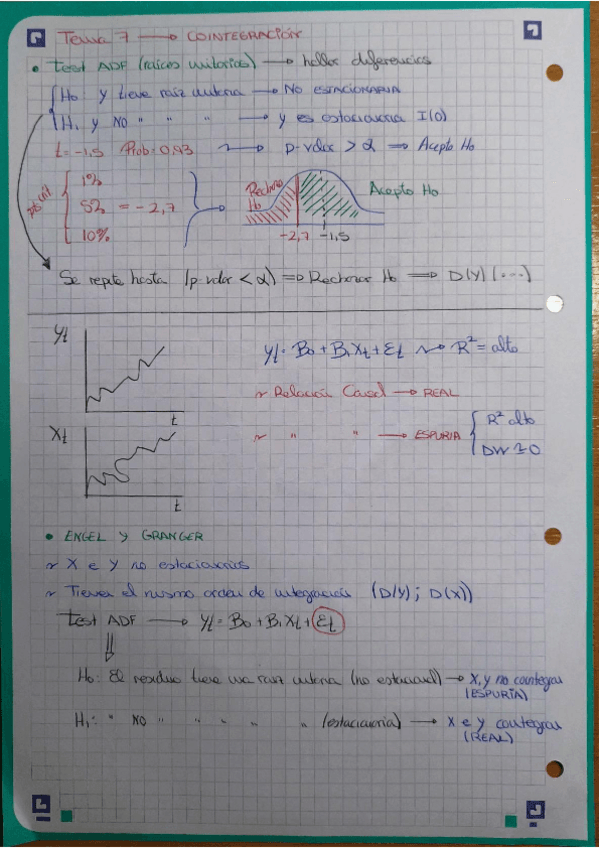 Tema 7 → COINTEGRACIÓN
• Test ADF (raíces unitarias) → hallar diferencias
H₀: y tiene raíz unitaria → NO ESTACIONARIA
H₁: y NO " " " → y es estacionaria I(0)
t = -1,5 Prob: 0,93 → p-valor > α ⇒ Acepto H₀
1%
5% = -2,7
10%
Rechazo H₀
Acepto H₀
-2,7 -1,5
Se repite hasta (p-valor < α) ⇒ Rechazar H₀ ⇒ D(y) (...)
yt
t
yt = B₀ + B₁Xt + Et → R² = alto
~ Relación Causal → REAL
Xt
t
~ " " → ESPURIA { R² alto
DW ≃ 0
• ENGEL Y GRANGER
~ X e Y no estacionarias
~ Tienen el mismo orden de integración (D(y); D(x))
Test ADF → yt = B₀ + B₁Xt + Et
H₀: El residuo tiene una raíz unitaria (no estacional) → X, y no cointegran
(ESPURIA)
H₁: " NO " " " " " (estacionaria) → X e y cointegran
(REAL)